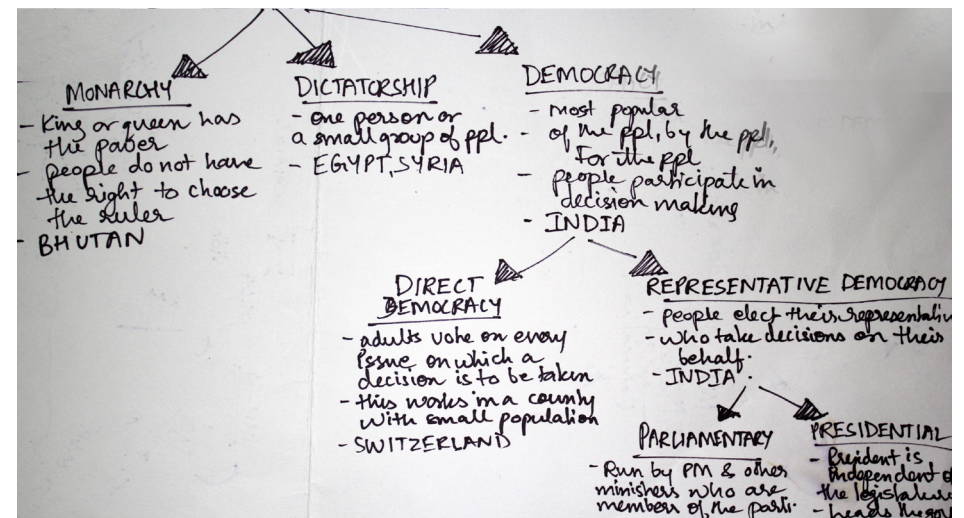 MONARCHY
- King or queen has
the power
- people do not have
the right to choose
the ruler
- BHUTAN
DICTATORSHIP
- one person or
a small group of ppl.
- EGYPT, SYRIA
DEMOCRACY
- most popular
- of the ppl, by the ppl,
for the ppl
- people participate in
decision making
- INDIA
DIRECT
DEMOCRACY
- adults vote on every
issue on which a
decision is to be taken
- this works in a county
with small population
- SWITZERLAND
REPRESENTATIVE DEMOCRACY
- people elect their representativ
- who take decisions on their
behalf.
- INDIA.
PARLIAMENTARY
- Run by PM & other
ministers who are
members of the parli.
PRESIDENTIAL
- President is
independent o
the legislature
- heads the go